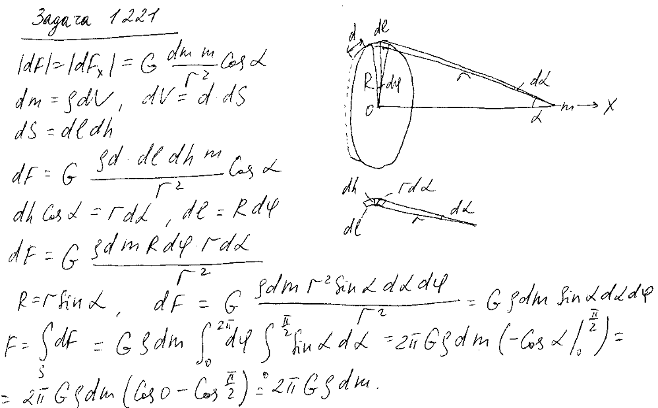 Задача 1221
|dF|=|dF_x| = G \frac{dm m}{r^2} Cos α
dm = ρdV, dV = d·dS
dS = dl dh
dF = G \frac{ρd·dl dh m}{r^2} Cos α
dh Cos α = r dα, dl = R dφ
dF = G \frac{ρdm R dφ r dα}{r^2}
R = r Sin α, dF = G \frac{ρdm r^2 Sin α dα dφ}{r^2} = G ρdm Sin α dα dφ
F = \int_S dF = G ρdm \int_0^{2π} dφ \int_0^{\frac{π}{2}} Sin α dα = 2π G ρdm (-Cos α |_0^{\frac{π}{2}}) =
= 2π G ρdm (Cos 0 - Cos \frac{π}{2}) = 2π G ρdm.
d dl
R dφ r dα
O α m X
dh r dα
dl r dα